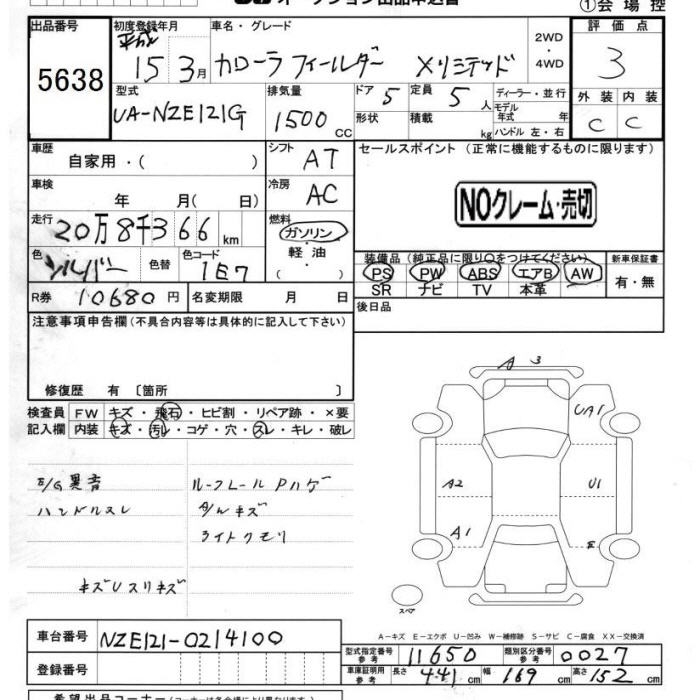 ①会場控
出品番号
5638
初度登録年月
平成
15 3月
車名・グレード
カローラフィールダー Xリミテッド
2WD
・
4WD
評価点
3
外装 内装
C C
型式
UA-NZE121G
排気量
1500 cc
ドア 5
定員 5 人
形状
積載 kg
ディーラー・並行
モデル年式 年
ハンドル 左・右
車歴
自家用・( )
シフト AT
車検
年 月( 日)
冷房 AC
走行
20万8千366 km
燃料
ガソリン
・
軽油
・
( )
色
シルバー
色替
色コード
1E7
R券 10680円
名変期限 月 日
セールスポイント(正常に機能するものに限ります)
NOクレーム・売切
装備品(純正品に限り○をつけてください)
PS PW ABS エアB AW
SR ナビ TV 本革
新車保証書
有・無
後日品
注意事項申告欄(不具合内容等は具体的に記入して下さい)
修復歴 有〔箇所 〕
検査員 FW キズ・飛石・ヒビ割・リペア跡・×要
記入欄 内装 キズ・汚レ・コゲ・穴・スレ・キレ・破レ
E/G異音
ハンドルスレ
キズUスリキズ
ルーフレールPハゲ
ライトクモリ
A 3
UA1
A2
U1
A1
E
スペア
A-キズ E-エクボ U-凹み W-補修跡 S-サビ C-腐食 XX-交換済
車台番号 NZE121-0214100
登録番号
型式指定番号 参考 11650
類別区分番号 参考 0027
車庫証明用 参考 長さ 441 幅 169 高さ 152 cm